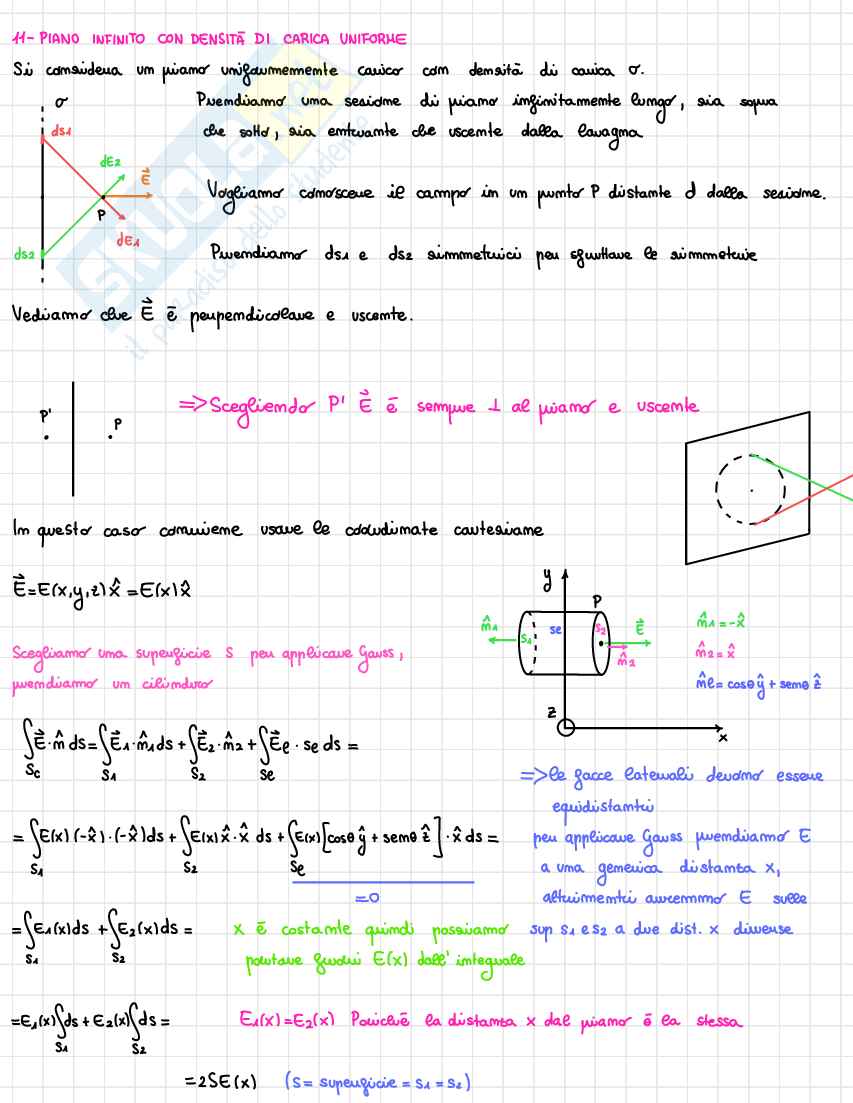 11- PIANO INFINITO CON DENSITĀ DI CARICA UNIFORME
Si considera un piano uniformemente carico con densitā di carica σ.
σ
Prendiamo una sezione di piano infinitamente lungo, sia sopra
ds1
che sotto, sia entrante che uscente dalla lavagna
dE2
E⃗
P
dE1
Vogliamo conoscere il campo in un punto P distante d dalla sezione.
ds2
Prendiamo ds1 e ds2 simmetrici per sfruttare le simmetrie
SKUOLA.net
il paradiso dello studente
Vediamo che E⃗ ē perpendicolare e uscente.
P'
P
=>Scegliendo P' E⃗ ē sempre ⊥ al piano e uscente
In questo caso conviene usare le coordinate cartesiane
E⃗=E(x,y,z)x̂ =E(x)x̂
y
P
n̂1
S1
se
S2
E⃗
n̂2
z
x
n̂1=-x̂
n̂2=x̂
n̂e=cosθŷ+senθẑ
Scegliamo una superficie S per applicare Gauss,
prendiamo un cilindro
∫Sc E⃗·n̂ ds=∫S1 E⃗1·n̂1ds+∫S2 E⃗2·n̂2+∫Se E⃗e·se ds =
=>le facce laterali devono essere
equidistanti
= ∫S1 E(x)(-x̂)·(-x̂)ds+∫S2 E(x)x̂·x̂ ds+∫Se E(x)[cosθŷ+senθẑ]·x̂ds=
=0
per applicare Gauss prendiamo E
a una generica distanza x,
altrimenti avremmo E sulle
sup s1 e s2 a due dist. x diverse
=∫S1 E1(x)ds +∫S2 E2(x)ds =
x ē costante quindi possiamo
portare fuori E(x) dall' integrale
=E1(x)∫S1 ds+E2(x)∫S2 ds=
E1(x)=E2(x) Poichē la distanza x dal piano ē la stessa
=2SE(x) (S= superficie = S1 = S2)